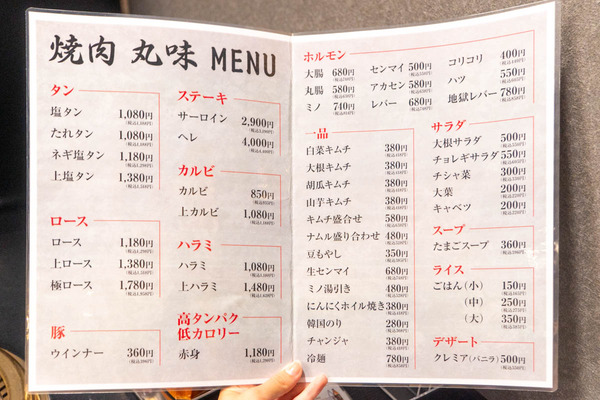 焼肉 丸味 MENU
タン
塩タン 1,080円
たれタン 1,080円
ネギ塩タン 1,180円
上塩タン 1,380円
ロース
ロース 1,180円
上ロース 1,380円
極ロース 1,780円
豚
ウインナー 360円
ステーキ
サーロイン 2,900円
ヘレ 4,000円
カルビ
カルビ 850円
上カルビ 1,080円
ハラミ
ハラミ 1,080円
上ハラミ 1,480円
高タンパク
低カロリー
赤身 1,180円
ホルモン
大腸 680円
丸腸 580円
ミノ 740円
センマイ 500円
アカセン 580円
レバー 680円
コリコリ 400円
ハツ 550円
地獄レバー 780円
一品
白菜キムチ 380円
大根キムチ 380円
胡瓜キムチ 380円
山芋キムチ 380円
キムチ盛合せ 580円
ナムル盛り合わせ 480円
豆もやし 350円
生センマイ 680円
ミノ湯引き 480円
にんにくホイル焼き 380円
韓国のり 280円
チャンジャ 380円
冷麺 780円
サラダ
大根サラダ 500円
チョレギサラダ 550円
チシャ菜 300円
大葉 200円
キャベツ 200円
スープ
たまごスープ 360円
ライス
ごはん(小) 150円
(中) 250円
(大) 350円
デザート
クレミア(バニラ) 500円